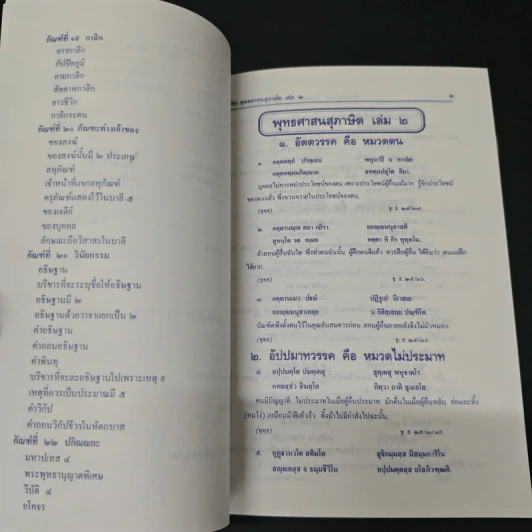 กัณฑ์ที่ ๑๙ กาลิก
ยาวกาลิก
กัปปิยภูมิ
ยามกาลิก
สัตตาหกาลิก
ยาวชีวิก
กาลิกระคน
กัณฑ์ที่ ๒๐ ภัณฑะต่างเจ้าของ
ของสงฆ์
ของสงฆ์นั้นมี ๒ ประเภท
ลหุภัณฑ์
เจ้าหน้าที่แจกลหุภัณฑ์
ครุภัณฑ์แสดงไว้ในบาลี ๕
ของเจดีย์
ของบุคคล
ลักษณะถือวิสาสะในบาลี
กัณฑ์ที่ ๒๑ วินัยกรรม
อธิษฐาน
บริขารที่จะระบุชื่อให้อธิษฐาน
อธิษฐานมี ๒
อธิษฐานด้วยวาจาแยกเป็น ๒
คำอธิษฐาน
คำถอนอธิษฐาน
คำพินทุ
บริขารที่จะละอธิษฐานไปเพราะเหตุ ๙
เหตุที่ควรเป็นประมาณมี ๕
คำวิกัป
คำถอนวิกัปจีวรในหัตถบาส
กัณฑ์ที่ ๒๒ ปกิณณกะ
มหาปเทส ๔
พระพุทธานุญาตพิเศษ
วิบัติ ๔
อโคจร
พุทธศาสนสุภาษิต เล่ม ๒
พุทธศาสนสุภาษิต เล่ม ๒
๑. อัตตวรรค คือ หมวดตน
๑. อตฺตทตฺถํ ปรตฺเถน พหุนาปิ น หาปเย
อตฺตทตฺถมภิญฺญาย สทตฺถปสุโต สิยา.
บุคคลไม่ควรพล่าประโยชน์ของตน เพราะประโยชน์ผู้อื่นแม้มาก รู้จักประโยชน์
ของตนแล้ว พึงขวนขวายในประโยชน์ของตน.
(พุทฺธ)
๒. อตฺตานญฺเจ ตถา กยิรา ยถญฺญมนุสาสติ
สุทนฺโต วต ทเมถ อตฺตา หิ กิร ทุทฺทโม.
(พุทฺธ)
๓. อตฺตานเมว ปฐมํ ปฏิรูเป นิเวสเย
อถญฺญมนุสาเสยฺย น กิลิสฺเสยฺย ปณฺฑิโต.
บัณฑิตพึงตั้งตนไว้ในคุณอันสมควรก่อน สอนผู้อื่นภายหลังจึงไม่มัวหมอง.
(พุทฺธ)
๒. อัปปมาทวรรค คือ หมวดไม่ประมาท
๔. อปฺปมตฺโต ปมตฺเตสุ สุตฺเตสุ พหุชาคโร
อพลสฺสํว สีฆสฺโส หิตฺวา ยาติ สุเมธโส.
คนมีปัญญาดี ไม่ประมาทในเมื่อผู้อื่นประมาท มักตื่นในเมื่อผู้อื่นหลับ ย่อมละทิ้ง
(คนโง่) เหมือนม้าฝีเท้าเร็ว ทิ้งม้าไม่มีกำลังไปฉะนั้น.
(พุทฺธ)
๕. อุฏฺฐานวโต สติมโต สุจิกมฺมสฺส นิสมฺมการิโน
สญฺญตสฺส จ ธมฺมชีวิโน อปฺปมตฺตสฺส ยโสภิวฑฺฒติ.